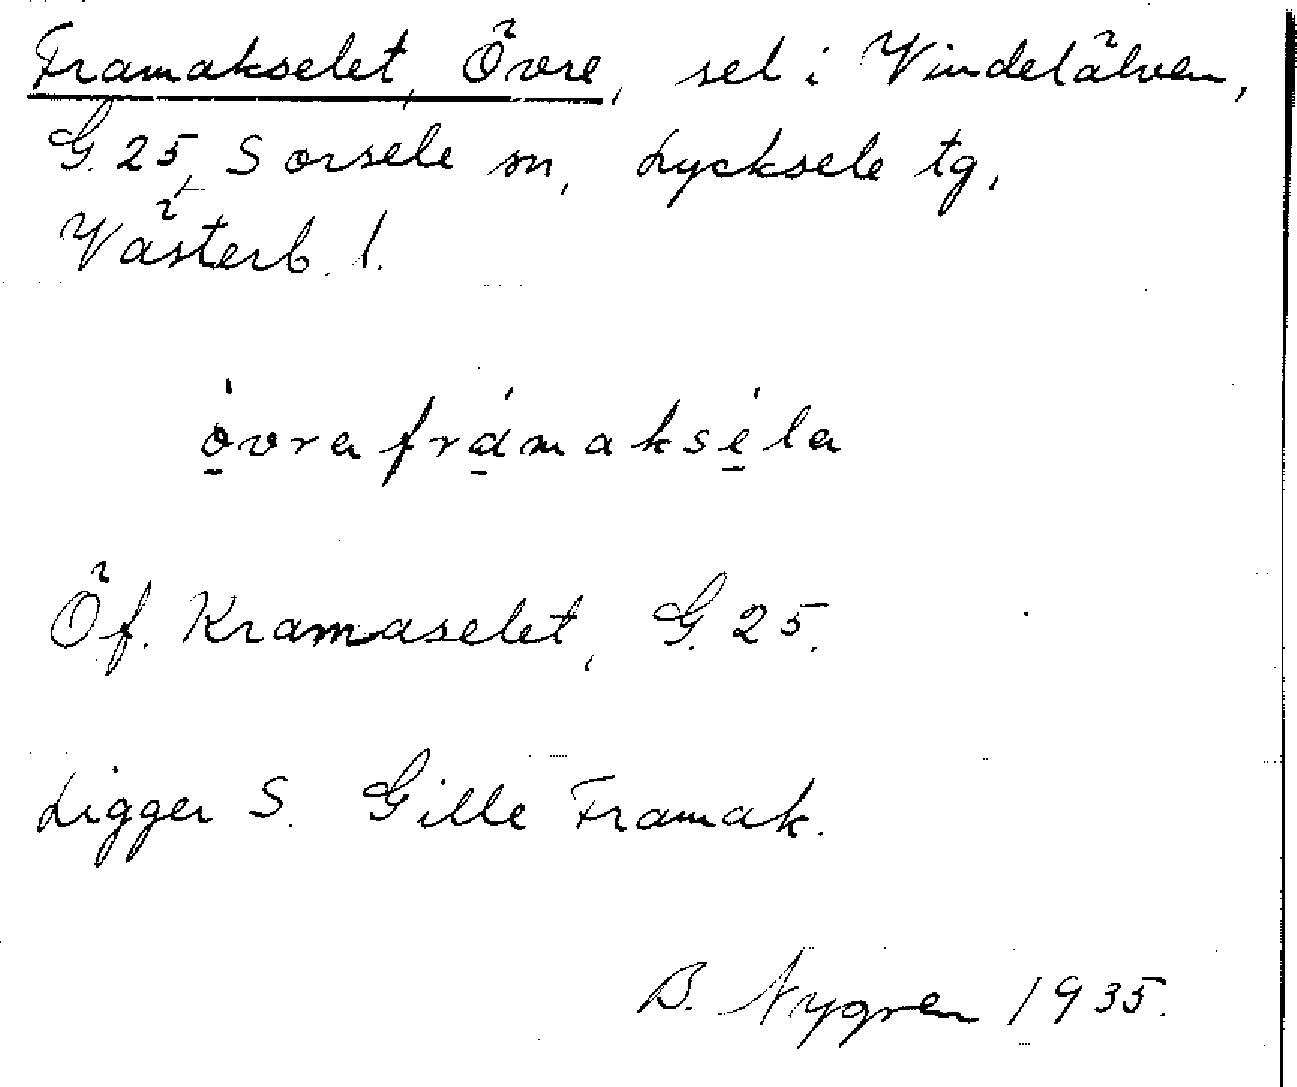 Framakselet, Övre, sel i Vindelälven,
G. 25, Sorsele sn, Lycksele tg,
Västerb. l.
övra frámakséla
Öf. Kramaselet, G. 25.
Ligger S. Gille Framak.
B. Nygren 1935.